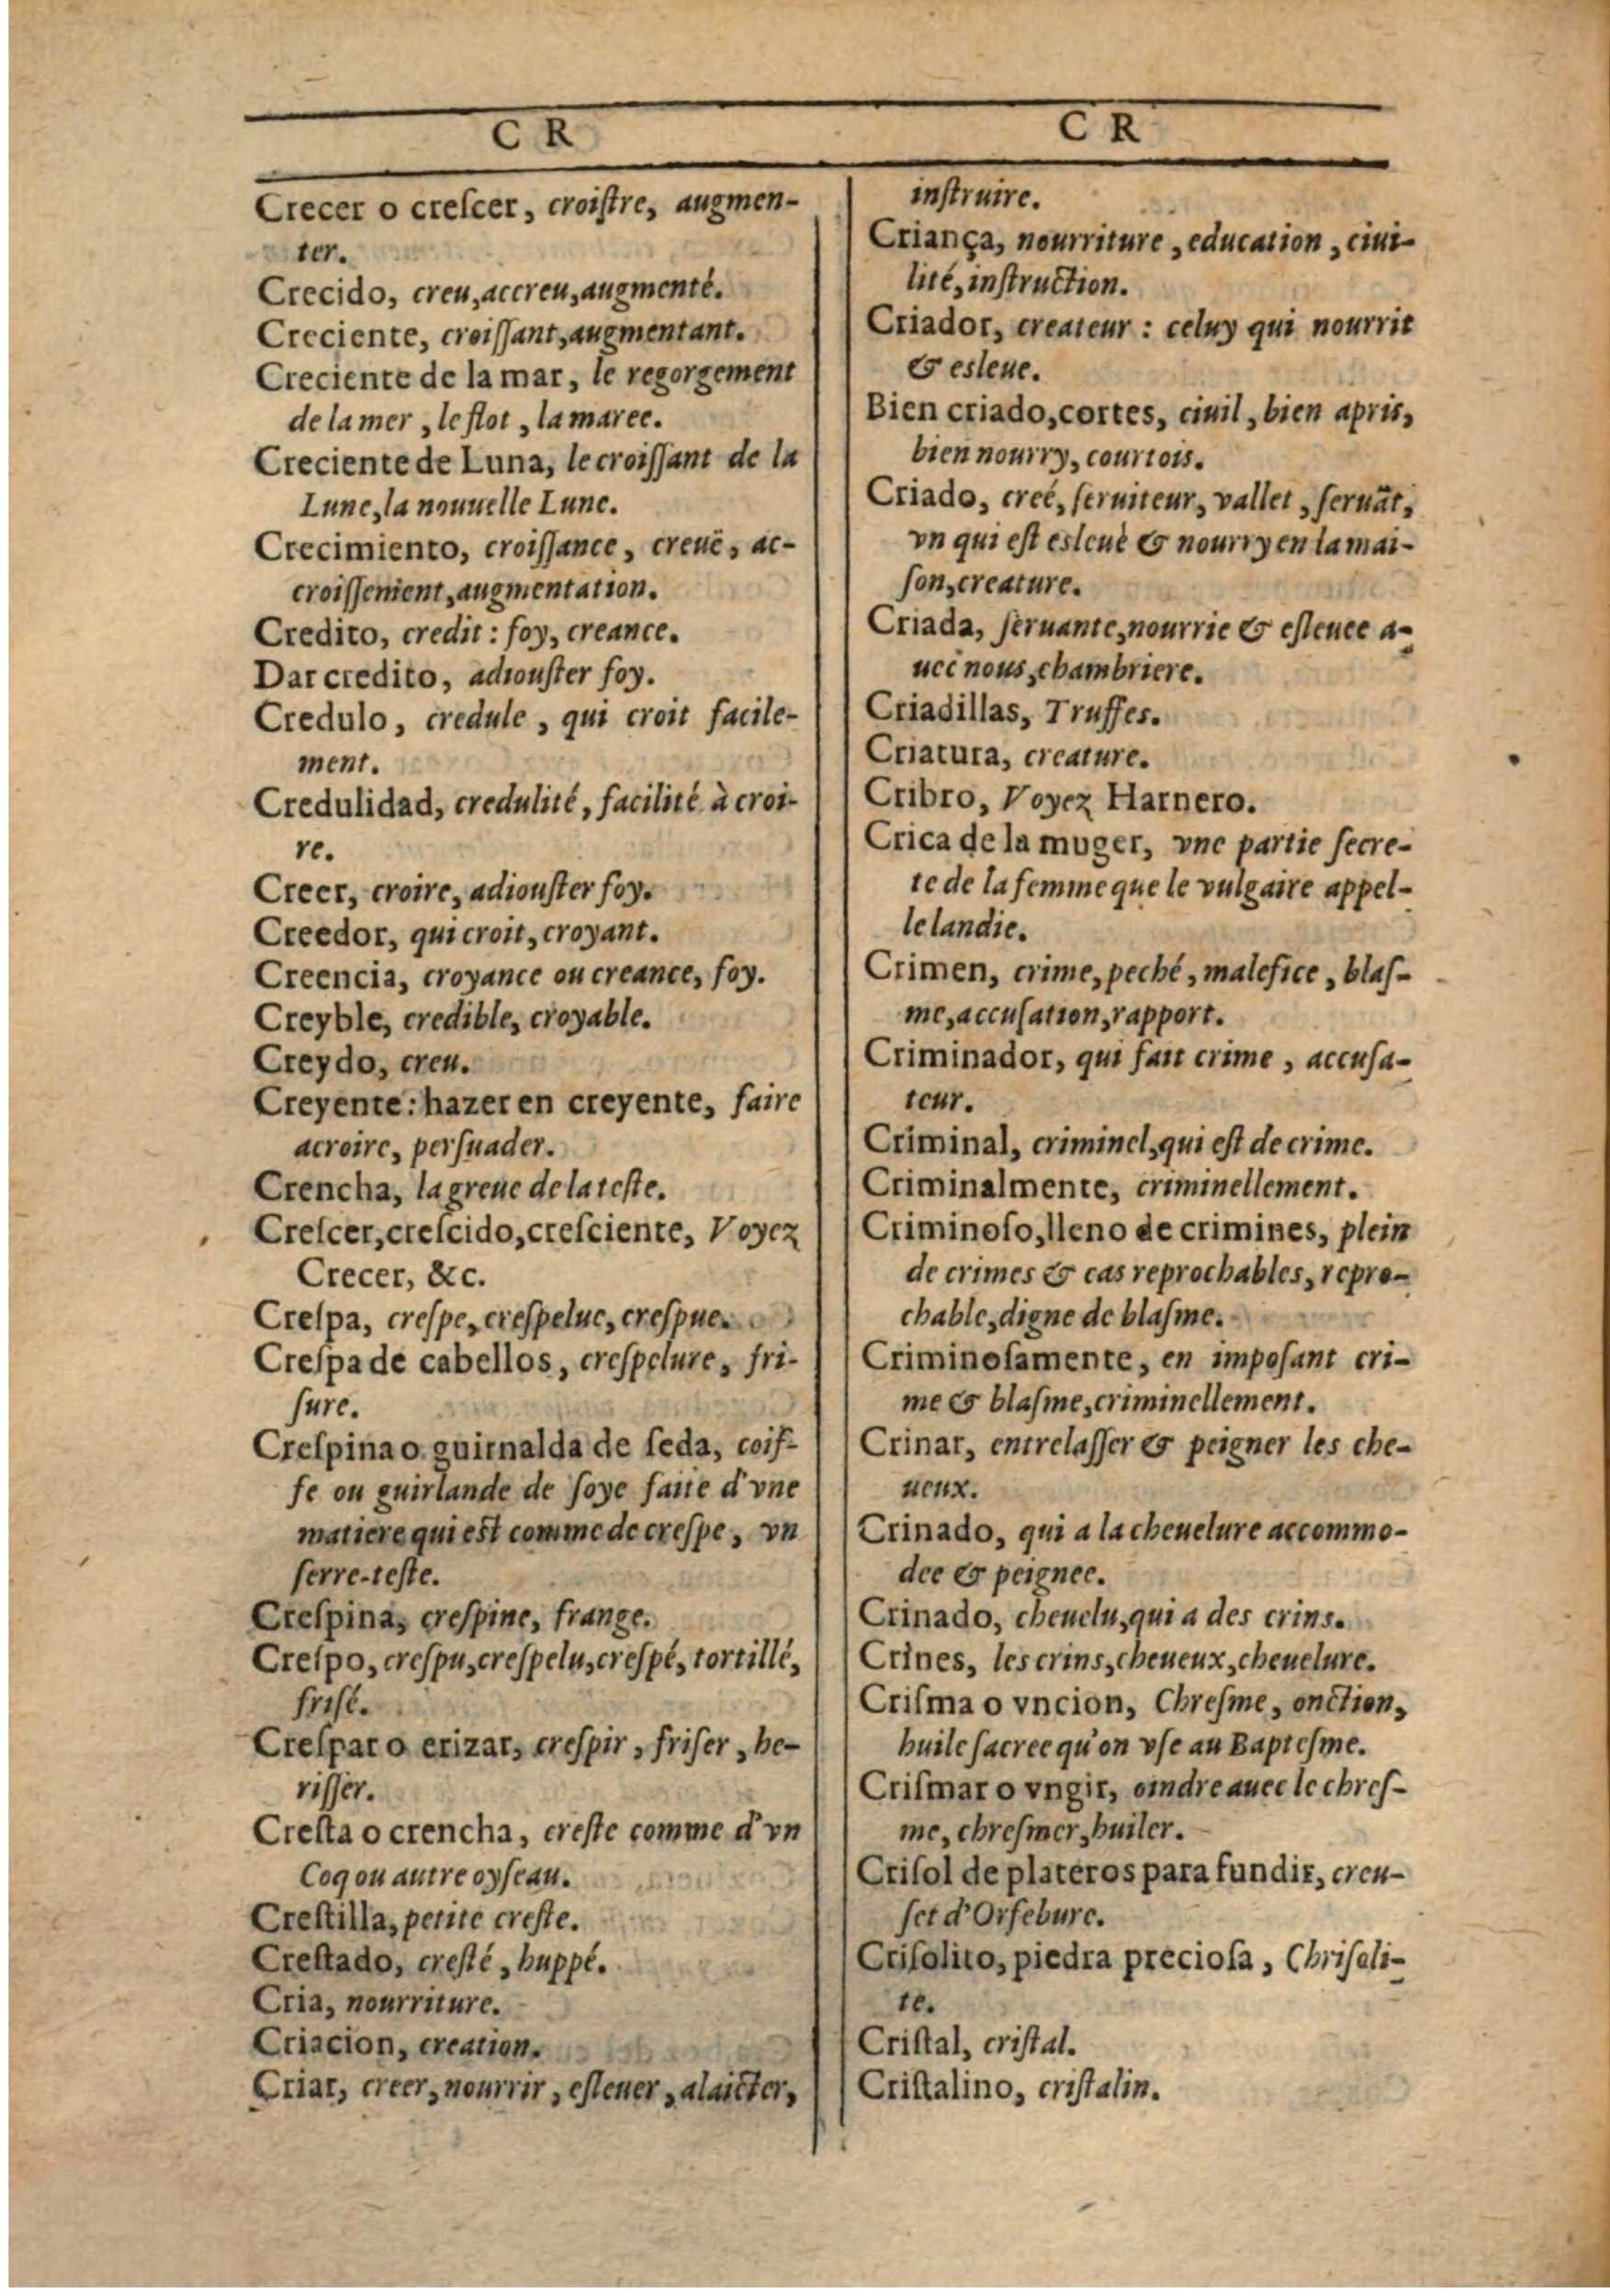 C R
Crecer o creſcer, croiſtre, augmen-
ter.
Crecido, creu,accreu,augmenté.
Creciente, croiſſant,augmentant.
Creciente de la mar, le regorgement
de la mer, le flot, la maree.
Creciente de Luna, le croiſſant de la
Lune,la nouuelle Lune.
Crecimiento, croiſſance, creuë, ac-
croiſſement,augmentation.
Credito, credit: foy, creance.
Dar credito, adiouſter foy.
Credulo, credule, qui croit facile-
ment.
Credulidad, credulité, facilité à croi-
re.
Creer, croire, adiouſter foy.
Creedor, qui croit, croyant.
Creencia, croyance ou creance, foy.
Creyble, credible, croyable.
Creydo, creu.
Creyente: hazer en creyente, faire
acroire, perſuader.
Crencha, la greue de la teſte.
Creſcer,creſcido,creſciente, Voyez
Crecer, &c.
Creſpa, creſpe, creſpelue, creſpue.
Creſpa de cabellos, creſpelure, fri-
ſure.
Creſpina o guirnalda de ſeda, coif-
fe ou guirlande de ſoye faite d'vne
matiere qui eſt comme de creſpe, vn
ſerre-teſte.
Creſpina, creſpine, frange.
Creſpo, creſpu,creſpelu,creſpé, tortillé,
friſé.
Creſpar o erizar, creſpir, friſer, he-
riſſer.
Creſta o crencha, creſte comme d'vn
Coq ou autre oyſeau.
Creſtilla, petite creſte.
Creſtado, creſté, huppé.
Cria, nourriture.
Criacion, creation.
Criar, creer, nourrir, eſleuer, alaicter,
C R
inſtruire.
Criança, nourriture, education, ciui-
lité, inſtruction.
Criador, createur: celuy qui nourrit
& esleue.
Bien criado,cortes, ciuil, bien apris,
bien nourry, courtois.
Criado, creé, ſeruiteur, vallet, ſeruãt,
vn qui eſt esleué & nourry en la mai-
ſon,creature.
Criada, ſeruante,nourrie & eſleuee a-
uec nous,chambriere.
Criadillas, Truffes.
Criatura, creature.
Cribro, Voyez Harnero.
Crica de la muger, vne partie ſecre-
te de la femme que le vulgaire appel-
le landie.
Crimen, crime, peché, malefice, blaſ-
me,accuſation,rapport.
Criminador, qui fait crime, accuſa-
teur.
Criminal, criminel,qui eſt de crime.
Criminalmente, criminellement.
Criminoſo,lleno de crimines, plein
de crimes & cas reprochables, repro-
chable,digne de blaſme.
Criminoſamente, en impoſant cri-
me & blaſme,criminellement.
Crinar, entrelaſſer & peigner les che-
ueux.
Crinado, qui a la cheuelure accommo-
dee & peignee.
Crinado, cheuelu,qui a des crins.
Crines, les crins,cheueux,cheuelure.
Criſma o vncion, Chreſme, onction,
huile ſacree qu'on vſe au Bapteſme.
Criſmar o vngir, oindre auec le chreſ-
me, chreſmer,huiler.
Criſol de plateros para fundir, creu-
ſet d'Orfebure.
Criſolito, piedra precioſa, Chriſoli-
te.
Criſtal, criſtal.
Criſtalino, criſtalin.